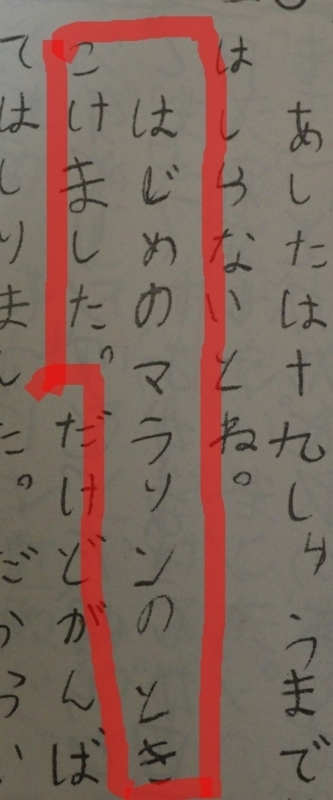 あしたは十九しゅうまで
はしらないとね。
はじめのマラソンのとき
こけました。だけどがんば
てはしりました。だからい